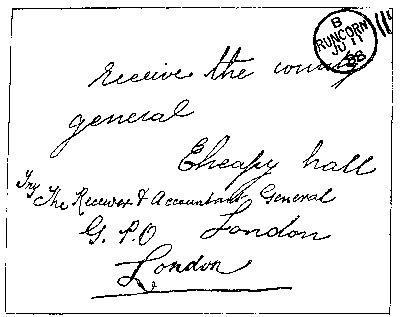 B
RUNCORN
JU 11
88
Receive the county
general
Cheapy hall
Try The Receiver & Accountant General
G. P. O London
London